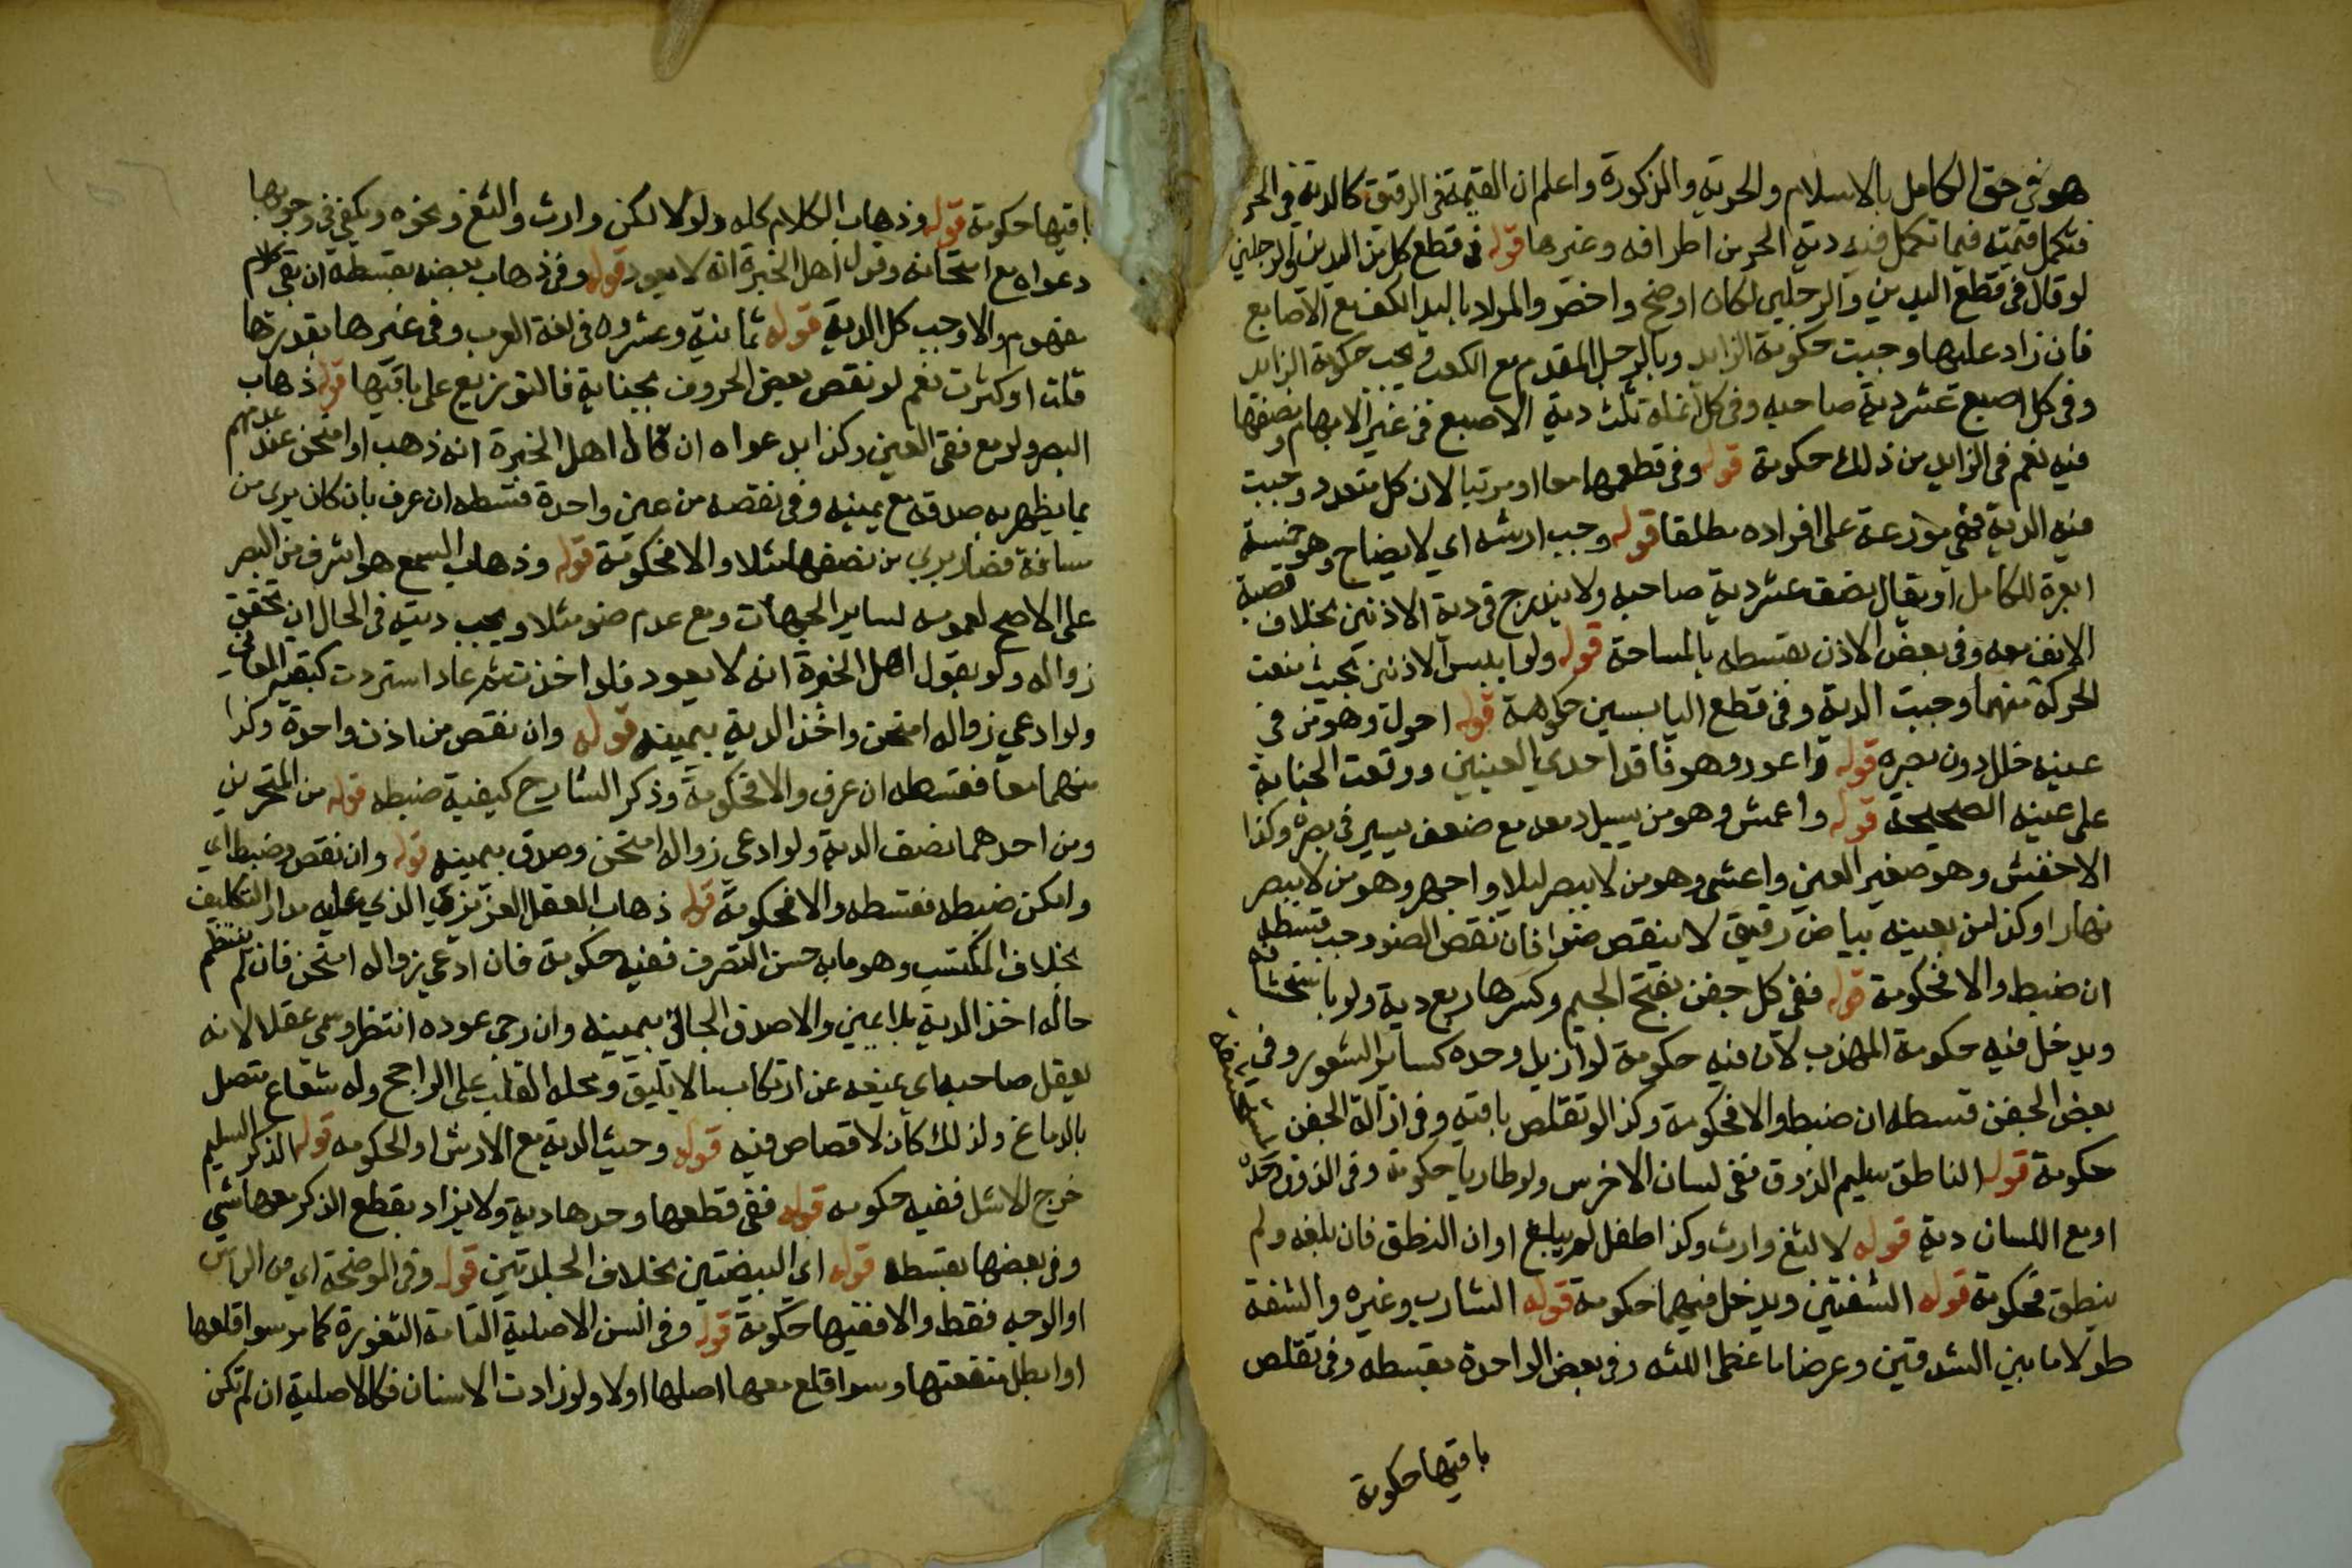 هو في حق الكامل بالاسلام والحرية والذكورة واعلم ان القيمة في الرقيق كالدية في الحر
فتكمل قيمته فيما تكمل فيه دية الحر من اطرافه وغيرها قوله في قطع كل من اليدين والرجلين
لو قال في قطع اليدين والرجلين لكان اوضح واخصر والمراد باليد الكف مع الاصابع
فان زاد عليها وجبت حكومة الزايد وبالرجل المقدم مع الكعب فيجب حكومة الزايد
وفي كل اصبع عشر دية صاحبه وفي كل انملة ثلث دية الاصبع في غير الابهام ونصفها
فيه نعم في الزايد من ذلك حكومة قوله وفي قطعهما معا او مرتبا لان كل متعدد وجبت
فيه الدية فهي موزعة على افراده مطلقا قوله وجب ارشه اي لايضاح وهو خمسة
ابعرة للكامل او يقال نصف عشر دية صاحبه ولا يندرج في دية الاذنين بخلاف قصبة
الانف معه وفي بعض الاذن بقسطه بالمساحة قوله ولو ايبس الاذنين بحيث منعت
الحركة منهما وجبت الدية وفي قطع اليابستين حكومة قوله احول وهو من في
عينه خلل دون بصره قوله واعور وهو فاقد احدي العينين ووقعت الجناية
على عينه الصحيحة قوله واعمش وهو من يسيل دمعه مع ضعف يسير في بصره وكذا
الاخفش وهو صغير العين واعشى وهو من لا يبصر ليلا واجهر وهو من لا يبصر
نهارا وكذا من بعينه بياض رقيق لا ينقص ضوا فان نقص الضو وجب قسطه
ان ضبط والا فحكومة قوله ففي كل جفن بفتح الجيم وكسرها ربع دية ولو باستحشافه
ويدخل فيه حكومة الهدب لان فيه حكومة لو ازيل وحده كساير الشعور وفي
بعض الجفن قسطه ان ضبط والا فحكومة وكذا لو تقلص باقيه وفي ازالة الجفن
حكومة قوله الناطق سليم الذوق ففي لسان الاخرس ولو طاريا حكومة وفي الذوق وحده
او مع اللسان دية قوله لالثغ وارت وكذا طفل لم يبلغ اوان النطق فان بلغه ولم
ينطق فحكومة قوله الشفتين ويدخل فيهما حكومة قوله الشارب وغيره والشفة
طولا ما بين الشدقين وعرضا ما غطى اللثه وفي بعض الواحدة بقسطه وفي تقلص
باقيها حكومة
باقيها حكومة قوله وذهاب الكلام كله ولو لالكن وارت والثغ ونحوه ويكفي في وجوبها
دعواه مع امتحانه وقول اهل الخبرة انه لا يعود قوله وفي ذهاب بعضه بقسطه ان بقي كلام
مفهوم والا وجب كل الدية قوله ثمانية وعشرون في لغة العرب وفي غيرها بقدرها
قلت او كثرت نعم لو نقص بعض الحروف بجناية فالتوزيع على باقيها قوله ذهاب
البصر ولو مع فقئ العين وكذا بدعواه ان قال اهل الخبرة انه ذهب او امتحن عند عدمهم
بما يظهر به صدقه مع يمينه وفي نقصه من عين واحدة قسطه ان عرف بان كان يرى من
مسافة فصار يري من نصفها مثلا والا فحكومة قوله وذهاب السمع هو اشرف من البصر
على الاصح لعمومه لساير الجهات ومع عدم ضو مثلا ويجب ديته في الحال ان تحقق
زواله ولو بقول اهل الخبرة انه لا يعود فلو اخذت ثم عاد استردت كبقية المعاني
ولو ادعي زواله امتحن واخذ الدية بيمينه قوله وان نقص من اذن واحدة وكذا
منهما معا فقسطه ان عرف والا فحكومة وذكر الشارح كيفية ضبطه قوله من المنخرين
ومن احدهما نصف الدية ولو ادعى زواله امتحن وصدق بيمينه قوله وان نقص وضبط اي
وامكن ضبطه فقسطه والا فحكومة قوله ذهاب العقل الغريزي الذي عليه مدار التكليف
بخلاف المكتسب وهو ما به حسن التصرف ففيه حكومة فان ادعي زواله امتحن فان لم ينتظم
حاله اخذ الدية بلا يمين والا صدق الجاني بيمينه وان رجي عوده انتظر وسمي عقلا لانه
يعقل صاحبه اي يمنعه عن ارتكاب ما لا يليق ومحله القلب على الراجح وله شعاع متصل
بالدماغ ولذلك كان لا قصاص فيه قوله وحيث الدية مع الارش او الحكومه قوله الذكر السليم
خرج الاشل ففيه حكومه قوله ففي قطعها وحدها دية ولا يزاد بقطع الذكر معها شي
وفي بعضها بقسطه قوله اي البيضتين بخلاف الجلدتين قوله وفي الموضحة اي من الراس
او الوجه فقط والا ففيها حكومة قوله وفي السن الاصلية التامة الثغورة كما مر سوا قلعها
او ابطل منفعتها وسوا قلع معها اصلها او لا ولو زادت الاسنان فكالاصلية ان لم تكن